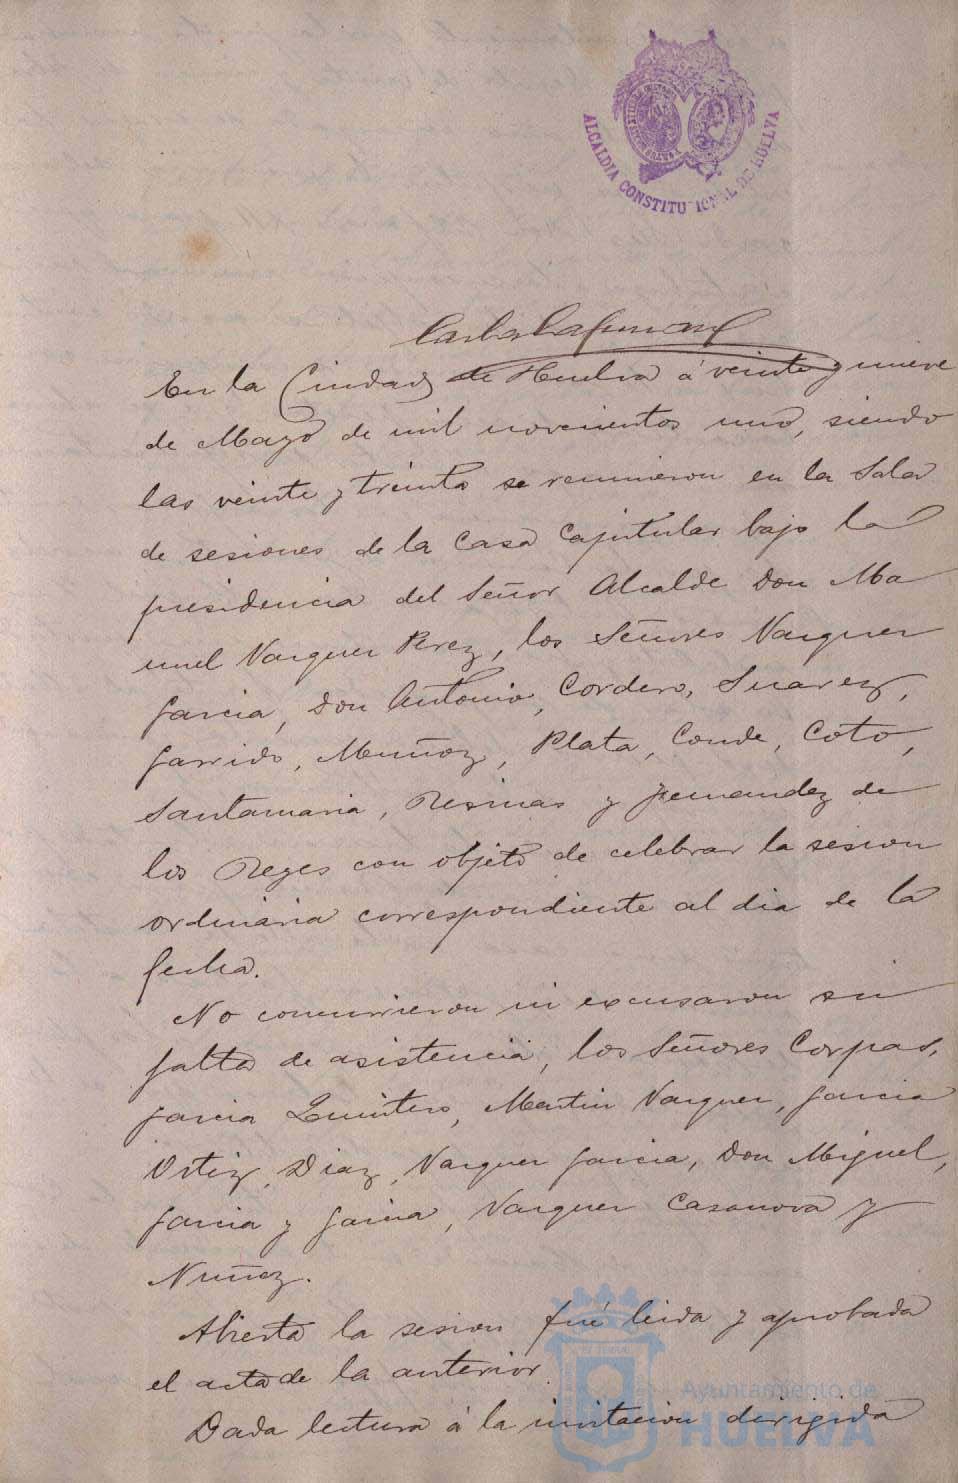 ALCALDIA CONSTITUCIONAL DE HUELVA
En la Ciudad de Huelva á veinte y nueve
de Mayo de mil novecientos uno, siendo
las veinte y treinta se reunieron en la Sala
de sesiones de la Casa Capitular bajo la
presidencia del Señor Alcalde Don Ma
nuel Vazquez Perez, los Señores Vazquez
Garcia, Don Antonio, Cordero, Suarez,
Garrido, Muñoz, Plata, Conde, Coto,
Santamaria, Resinas y Fernandez de
los Reyes con objeto de celebrar la sesion
ordinaria correspondiente al dia de la
fecha.
No concurrieron ni excusaron su
falta de asistencia, los Señores Corpas,
Garcia Quintero, Martin Vazquez, Garcia
Ortiz, Diaz, Vazquez Garcia, Don Miguel,
Garcia y Garcia, Vazquez Casanova y
Nuñez.
Abierta la sesion fué leida y aprobada
el acta de la anterior.
Dada lectura á la invitacion dirigida
Ayuntamiento de
HUELVA